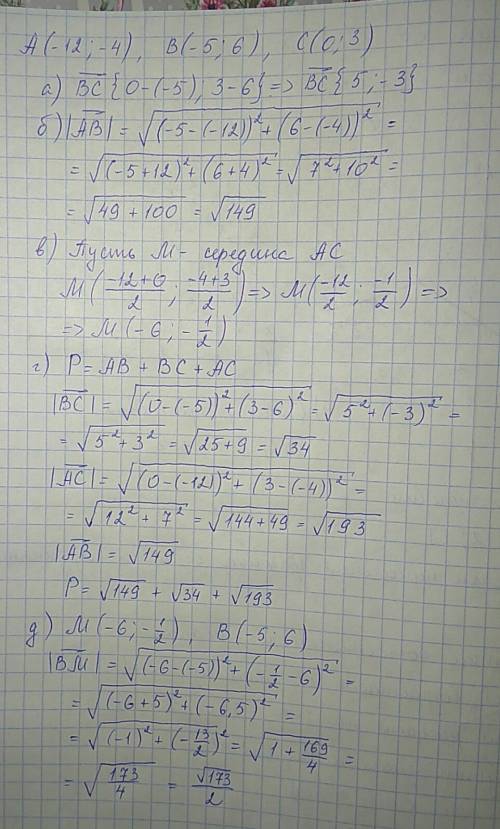 A(-12; -4), B(-5; 6), C(0; 3)
а) BC{0-(-5); 3-6} => BC{5; -3}
б) |AB| = √((-5-(-12))² + (6-(-4))²) =
= √((-5+12)² + (6+4)²) = √(7² + 10²) =
= √(49 + 100) = √149
в) Пусть M - середина AC
M((-12+0)/2; (-4+3)/2) => M(-12/2; -1/2) =>
=> M(-6; -1/2)
г) P = AB + BC + AC
|BC| = √((0-(-5))² + (3-6)²) = √(5² + (-3)²) =
= √(5² + 3²) = √(25+9) = √34
|AC| = √((0-(-12))² + (3-(-4))²) =
= √(12² + 7²) = √(144+49) = √193
|AB| = √149
P = √149 + √34 + √193
д) M(-6; -1/2), B(-5; 6)
|BM| = √((-6-(-5))² + (-1/2 - 6)²) =
= √((-6+5)² + (-6,5)²) =
= √((-1)² + (-13/2)²) = √(1 + 169/4) =
= √(173/4) = √173/2